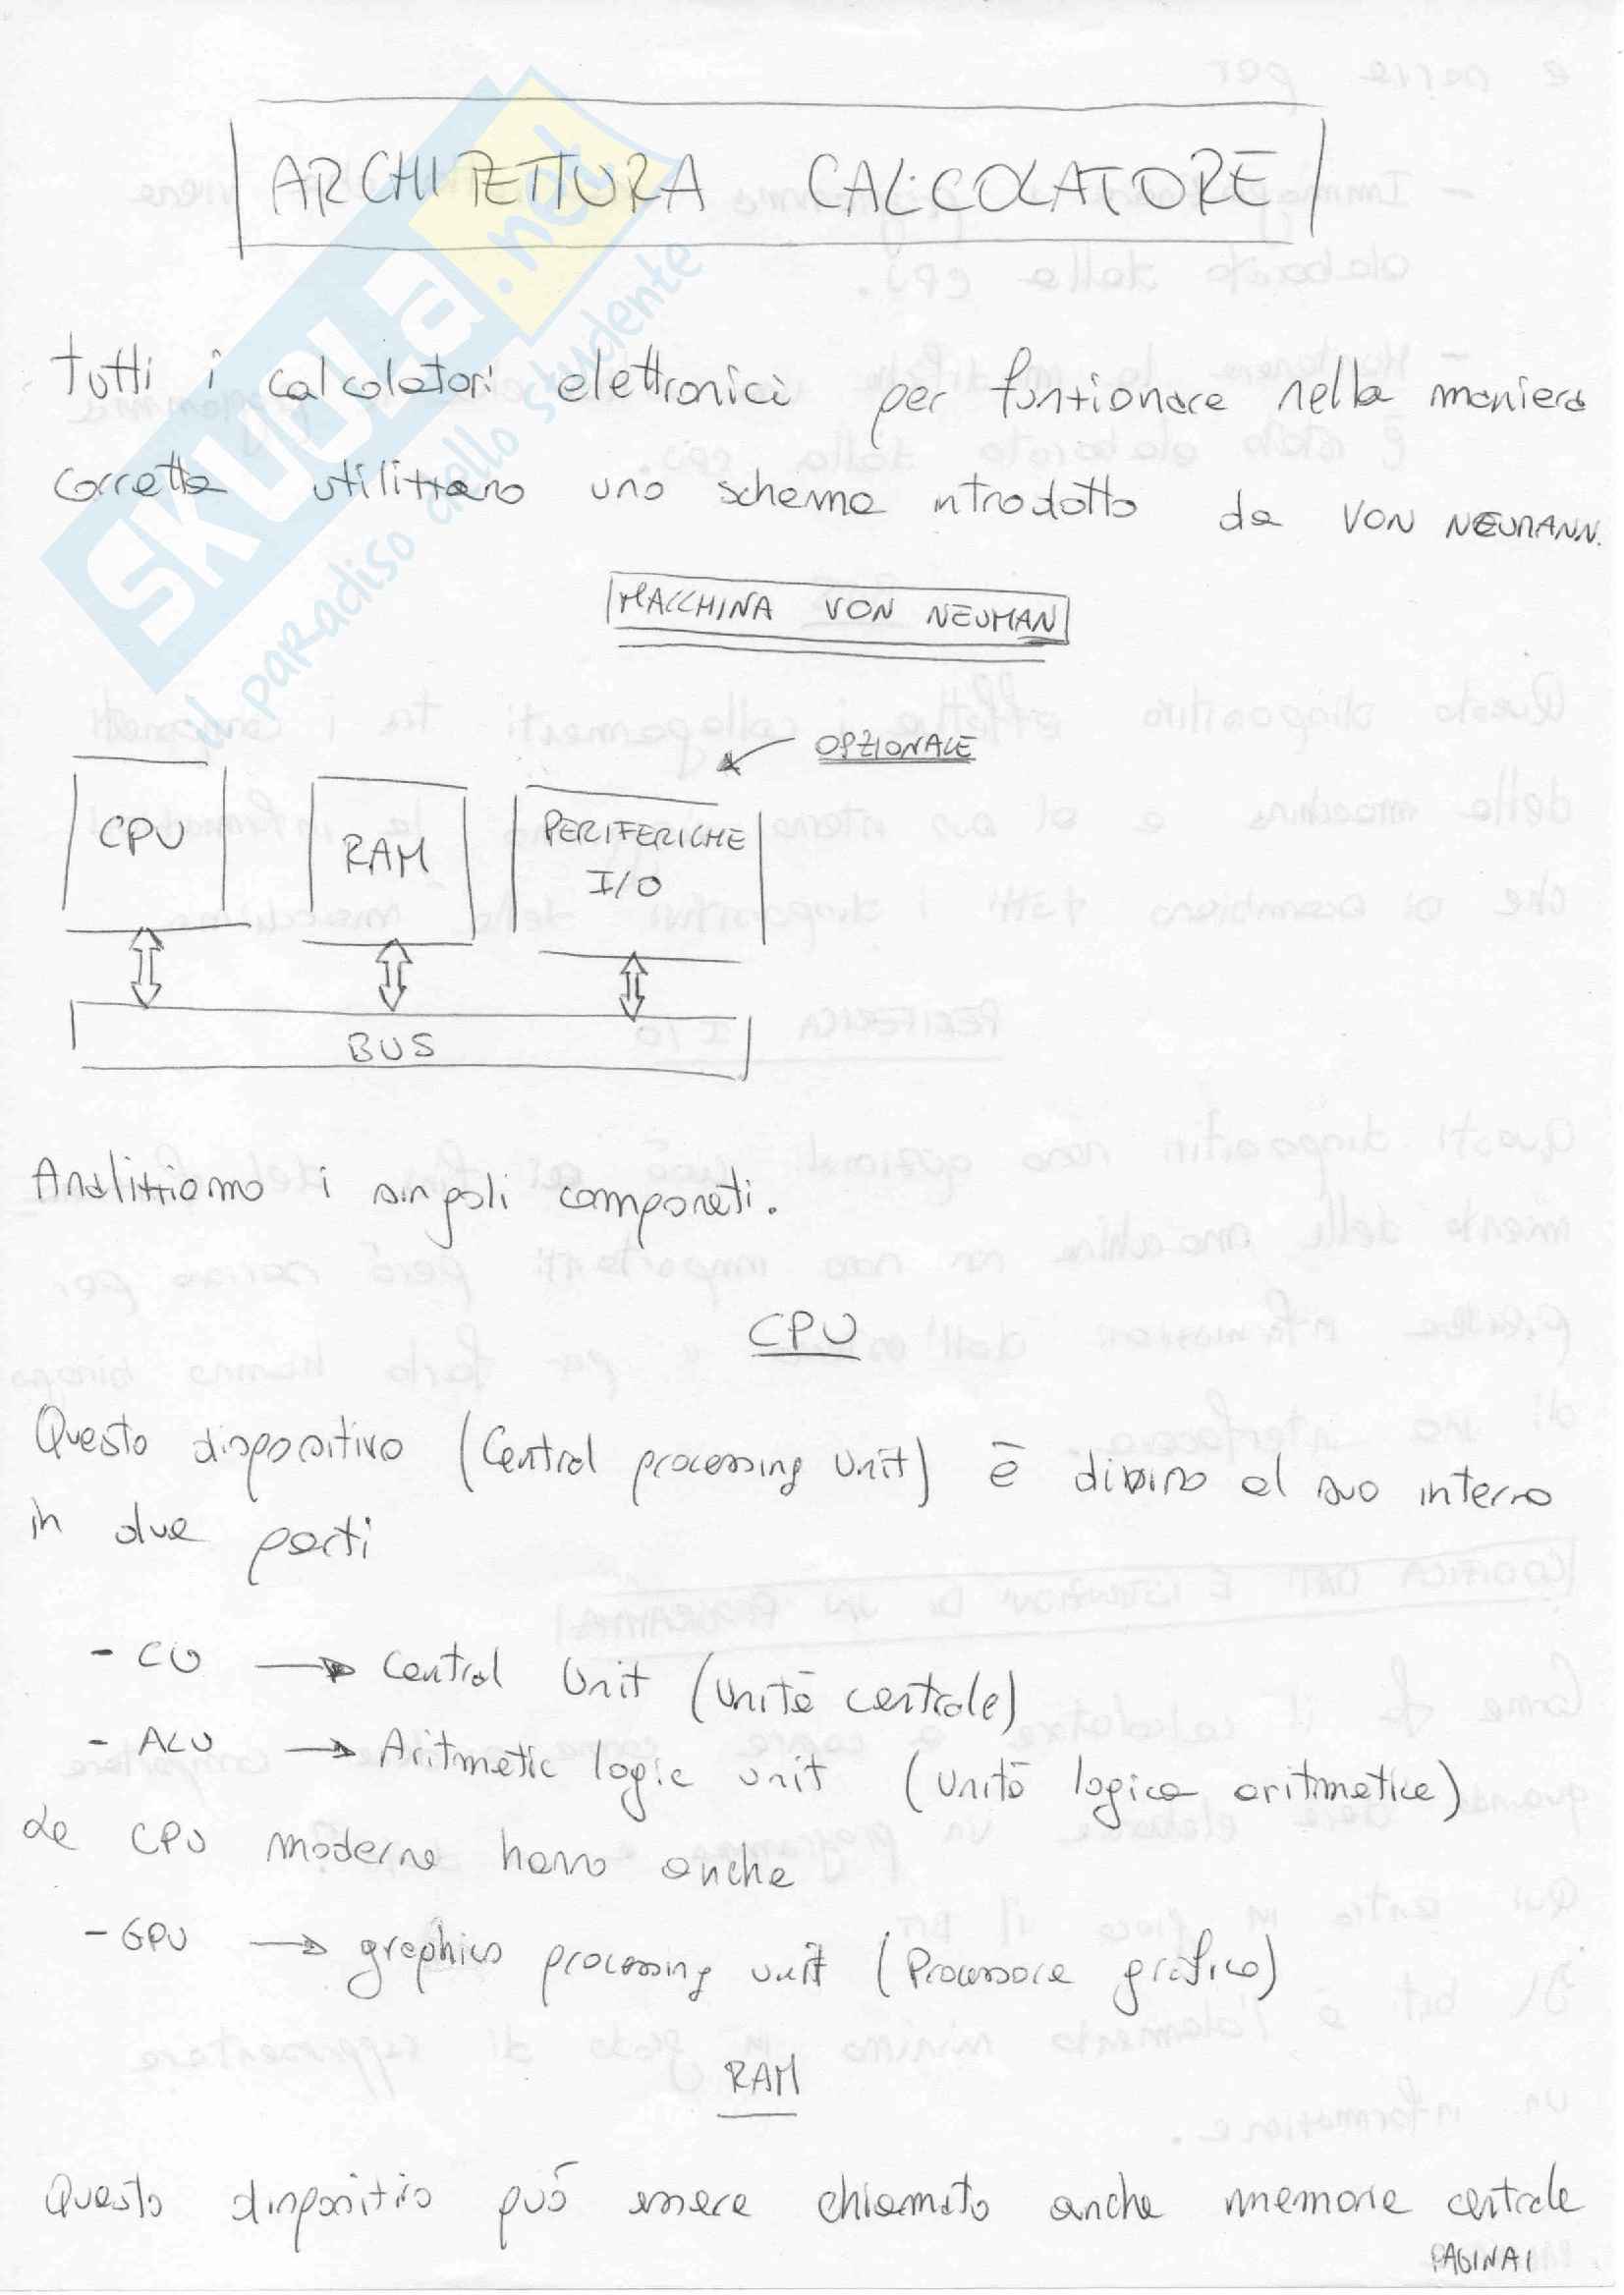 ARCHITETTURA CALCOLATORE
SKUOLA.net
il paradiso dello studente
Tutti i calcolatori elettronici per funzionare nella maniera
corretta utilizzano uno schema introdotto da VON NEUMANN.
MACCHINA VON NEUMAN
OPZIONALE
CPU
RAM
PERIFERICHE
I/O
BUS
Analizziamo i singoli componeti.
CPU
Questo dispositivo (Central processing Unit) è diviso al suo interno
in due parti
- CU → Central Unit (unità centrale)
- ALU → Aritmetic logic unit (unità logica aritmetica)
Le CPU moderne hanno anche
- GPU → graphics processing unit (Processore grafico)
RAM
Questo dispositivo può essere chiamato anche memoria centrale
PAGINA 1